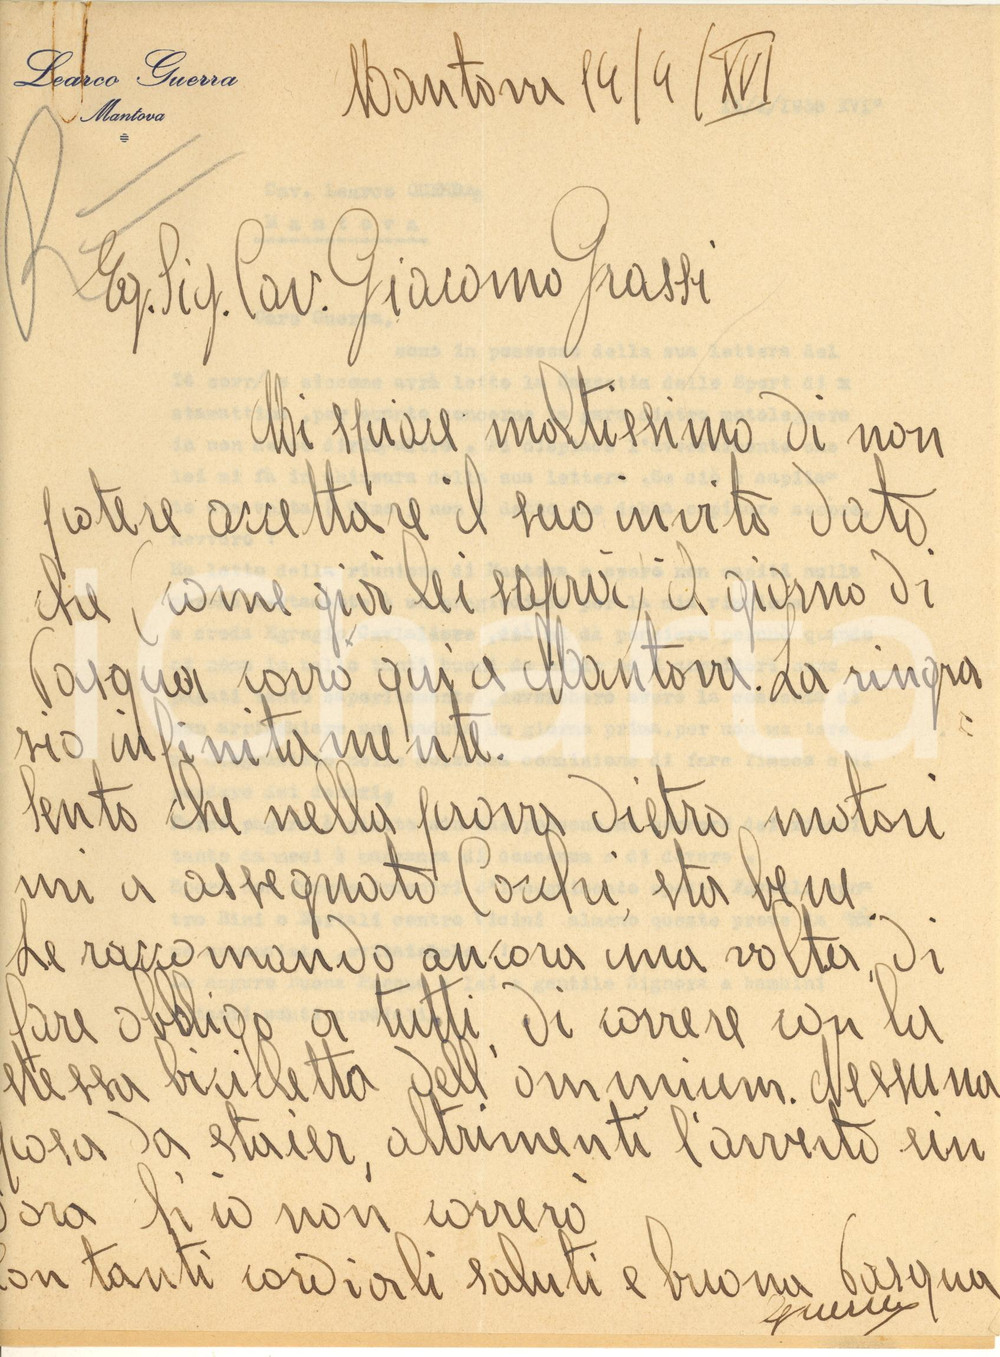 Learco Guerra
Mantova
Mantova 14/4/XVI
Eg. Sig. Cav. Giacomo Grassi
Mi spiace moltissimo di non
potere accettare il suo invito dato
che (come già Lei saprà) il giorno di
Pasqua corro qui a Mantova. La ringra
zio infinitamente.
Sento che nella prova dietro motori
mi a assegnato Cocchi, sta bene.
Le raccomando ancora una volta, di
fare obbligo a tutti, di correre con la
stessa bicicletta dell'ommnium. Nessuna
cosa da staier, altrimenti l'avverto sin
d'ora ch'io non correrò
Con tanti cordiali saluti e buona Pasqua
Guerra